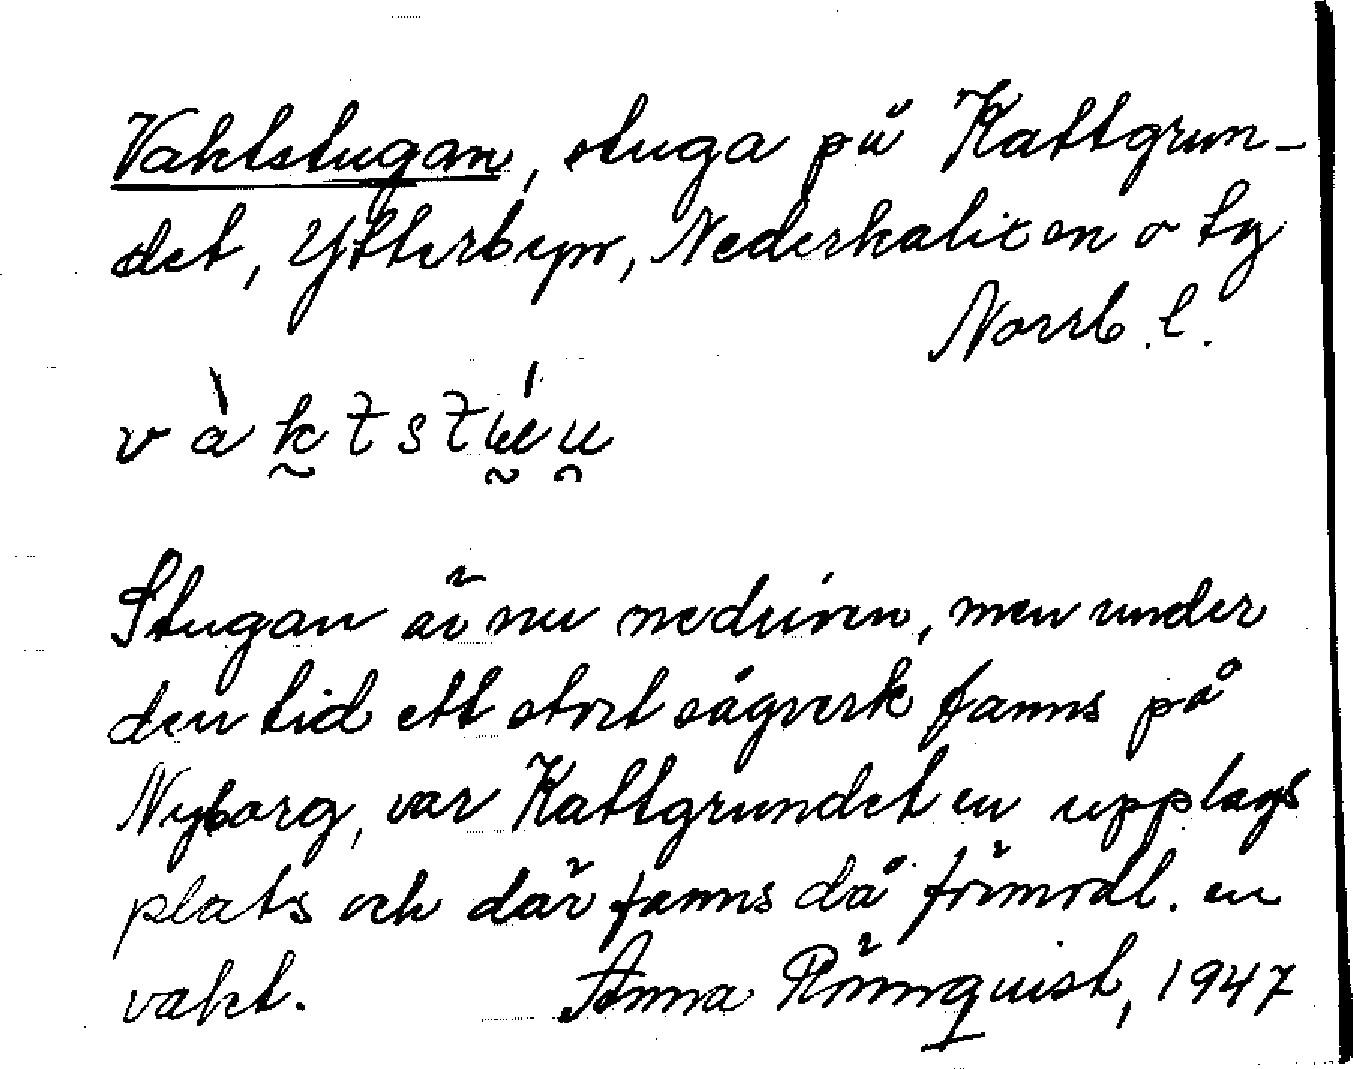 Vaktstugan, stuga på Kattgrun-
det, Ytterbyn, Nederkalix sn o tg
Norrb. l.
Stugan är nu nedriven, men under
den tid ett stort sågverk fanns på
Nyborg, var Kattgrundet en upplags
plats och där fanns då förmodl. en
vakt. Anna Rönnquist, 1947